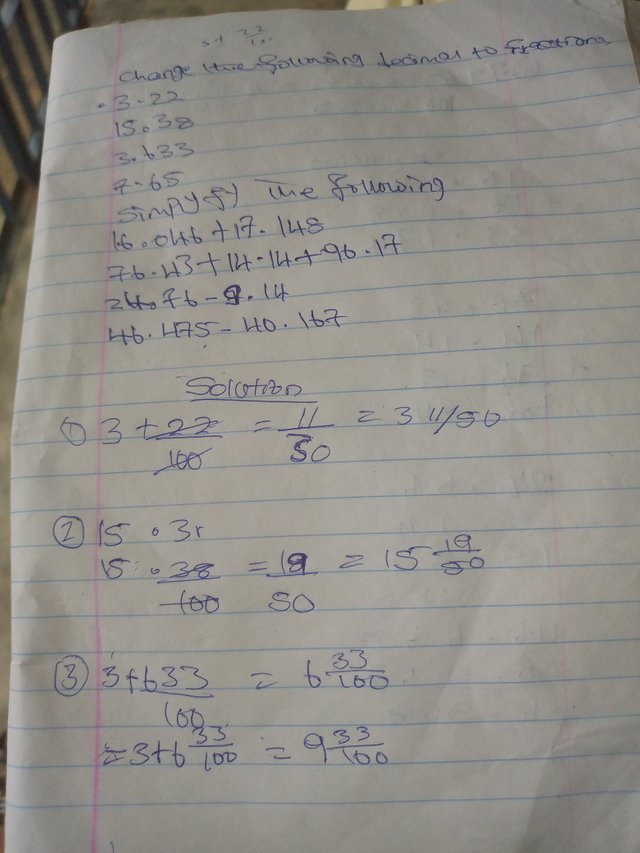 3+ 22/10.
Change the following decimal to fractions
. 3.22
15.38
3.633
7.65
Simplyfy the following
16.046+17.148
76.43+14.14+96.17
24.76-9.14
46.475-40.167
Solution
① 3 + 22/100 = 11/50 = 3 11/50
② 15.3
15.38/100 = 19/50 = 15 19/50
③ 3+633/100 = 6 33/100
=3+6 33/100 = 9 33/100